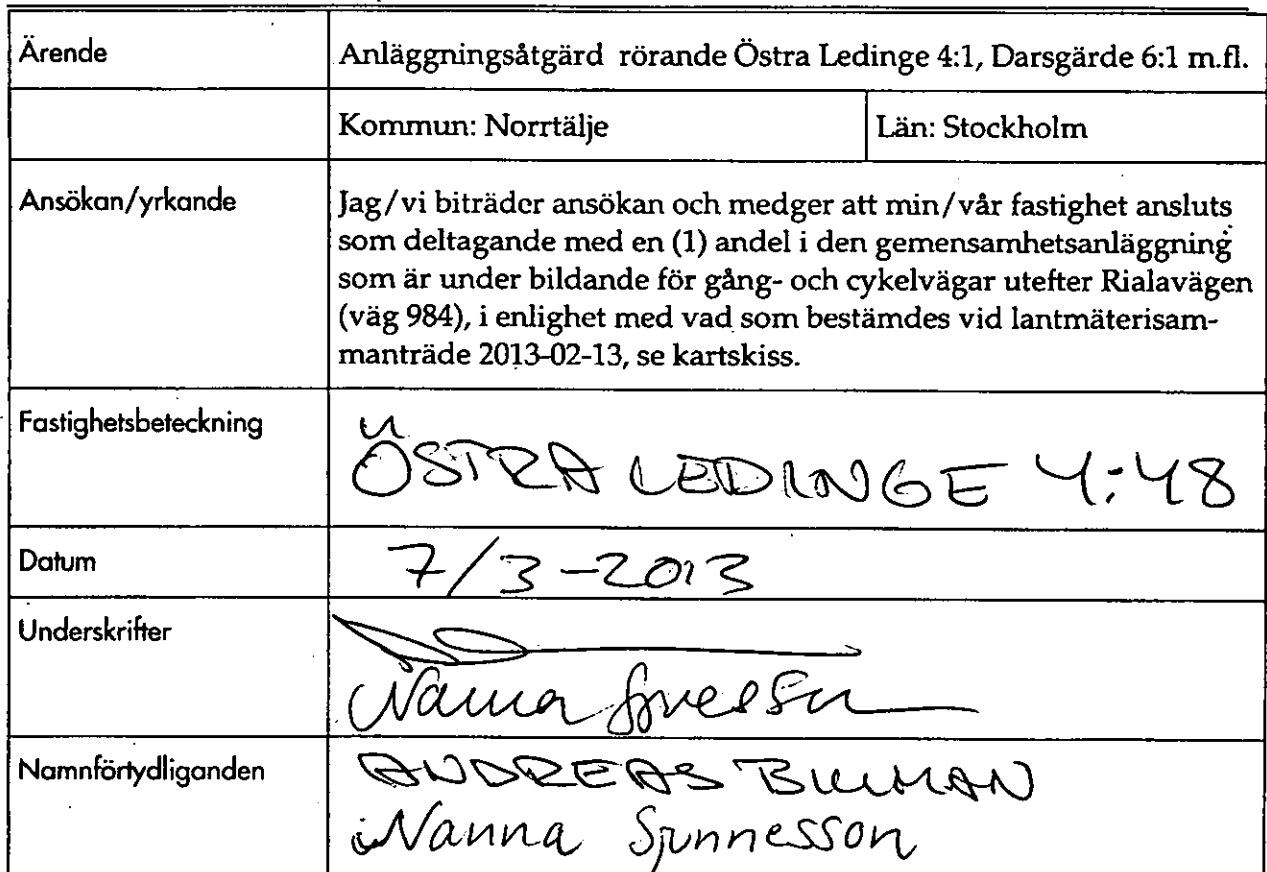 Ärende
Anläggningsåtgärd rörande Östra Ledinge 4:1, Darsgärde 6:1 m.fl.
Kommun: Norrtälje
Län: Stockholm
Ansökan/yrkande
Jag/vi biträder ansökan och medger att min/vår fastighet ansluts
som deltagande med en (1) andel i den gemensamhetsanläggning
som är under bildande för gång- och cykelvägar utefter Rialavägen
(väg 984), i enlighet med vad som bestämdes vid lantmäterisam-
manträde 2013-02-13, se kartskiss.
Fastighetsbeteckning
ÖSTRA LEDINGE 4:48
Datum
7/3-2013
Underskrifter
Nanna
Namnförtydliganden
ANDREAS
Nanna Sjunnesson